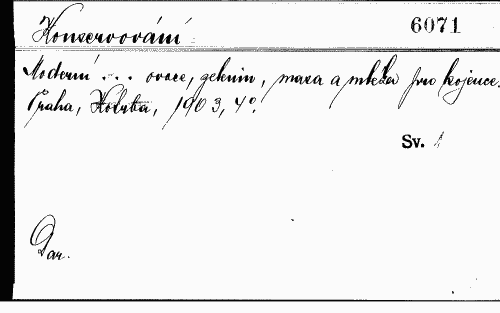 Konservování 6071
Moderní ... ovoce, zelenin, masa a mléka pro kojence.
Praha, Kotrba, 1903, 4°.
Sv. 1
Dar.